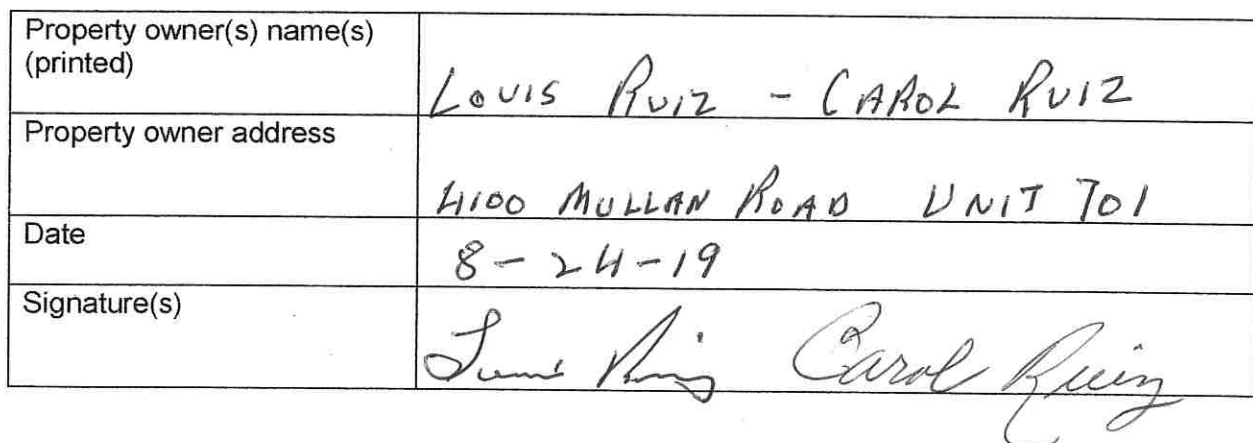 Property owner(s) name(s)
(printed)
LOUIS RUIZ - CAROL RUIZ
Property owner address
4100 MULLAN ROAD UNIT 701
Date
8-24-19
Signature(s)
Louis Ruiz Carol Ruiz